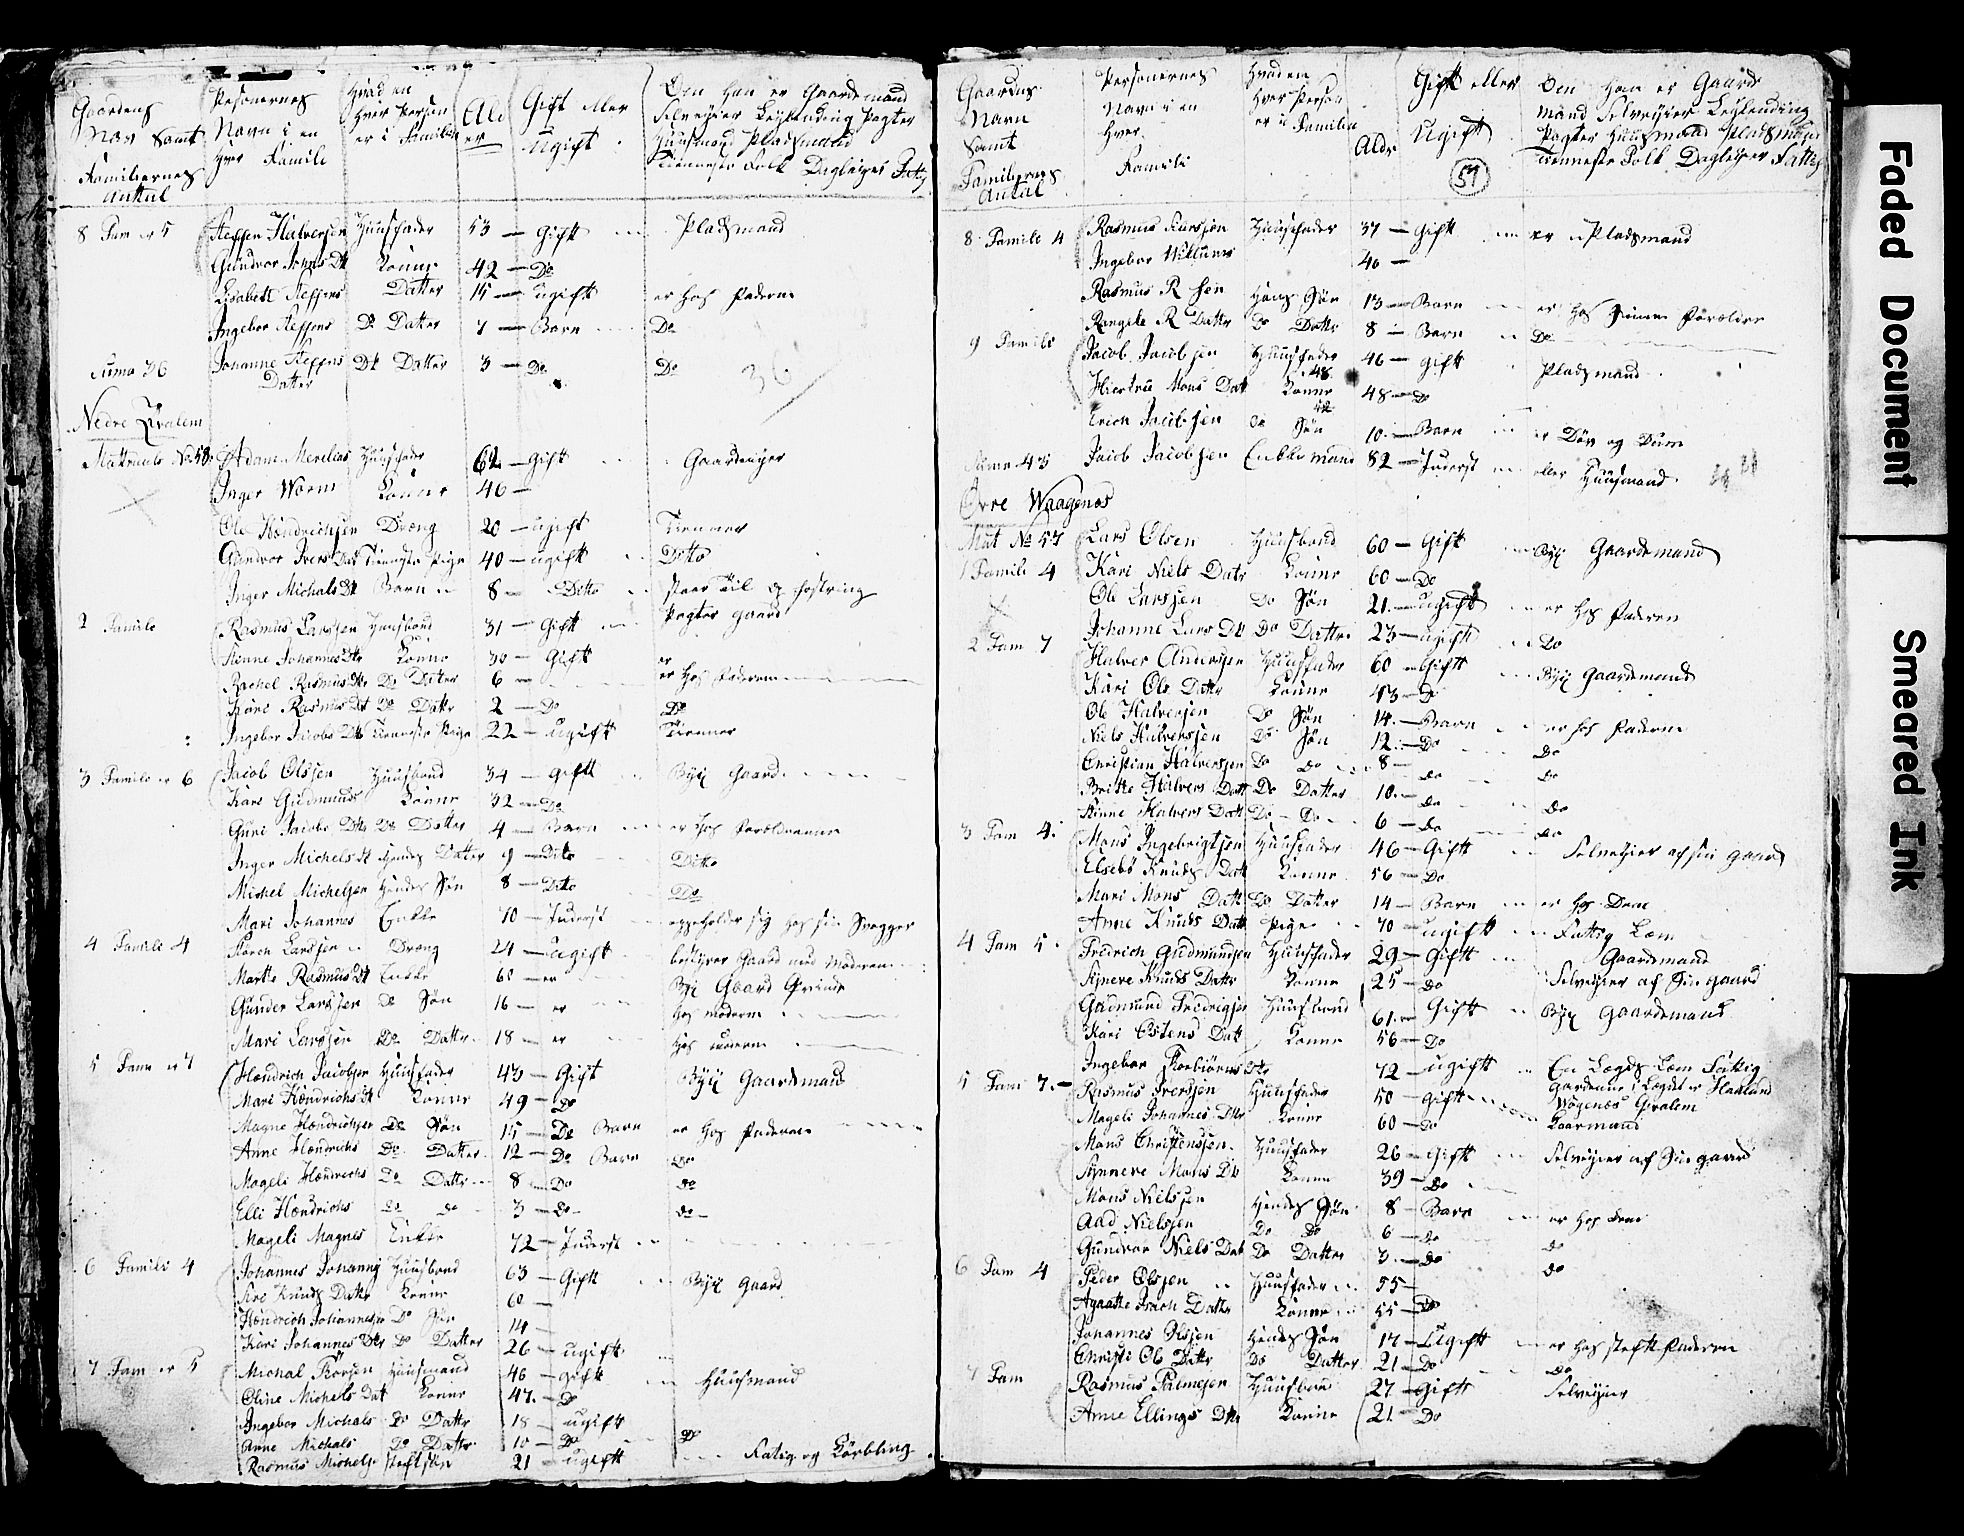 Gaardens Navn Samt Familiernes Anttal
Personernes Navn i en hver Famile
Hvad en hver Person er i Familien
Alder
Gift eller Ugift
Den Han er Gaardemand Selveyier Leylending Pagter Huusmand Pladsmand Tienneste Folk Dagleiyer Fattig
8 Fam er 5 Steffen Halversen Huusfader 53 — Gift Pladsmand
Gundvor Johns Dt Konne 42 — Do
Lisabett Steffens Datter 15 — Ugift er hos Faderne
Ingebor Steffens Do Datter 7 — Barn Do
Suma 36 Johanne Steffens Datter Dt Datter 3 — Do Do
36
Nedre Qvalem
Mattricule No 58 Adam Merelius Huusfader 62 — Gift Gaardeiyer
Inger Worm Konne 46 —
Ole Hændrichsen Dreng 20 — Ugift Tienner
Gundvor Ivers Dat Tienneste Pige 40 — Ugift Ditto
Inger Michals Dt Barn 8 — Ditto til Fostring
2 Familie Rasmus Larssen Huusbond 31 — Gift Pagter Gaard
Johannes Dtr Konne 30 — Gift er
Rachel Rasmus Dtr Do Datter 6 — er hos Faderne
Kari Rasmus Dt Do Dattr 2 — Do Do
Ingebor Jacobs Dtr Tienneste Pige 22 — Ugift Tienner
3 Famile er 6 Jacob Olssen Huusbond 34 — Gift Byx Gaard
Kari Gudmunds Konne 32 — Do
Guri Jacobs Dtr Do Datter 4 — Barn er hos Foreldrenne
Inger Michels Dt Hendes Datter 9 — Dito Ditto
Michel Michelsen Hendes Søn 8 — Dito Do
Mari Johannes Enkke 70 — Inderst oppeholder sig hos sin Svogger
4 Famile 4 Larssen Dreng 24 — Ugift bestyrer Gaard med Moderen
Martte Rasmus Dt Enkke 60 — er
Gunder Larssen Do Søn 16 — er hos moderne
Mari Larssen Do Datter 18 — er hos moderne
5 Famer 7 Hændrich Jacobsen Huusfader 43 — Gift Byx Gaardemand
Mari Hændrichs Dt Konne 49 — Do
Magne Hændrichsen Do Søn 15 — Do Barn er hos Faderne
Anne Hændrichs Do Datter 12 — Do Barn Do
Mageli Hændrichs Do Dattr 8 — Do Do
Elli Hændrichs Do Do 3 — Do Do
Mageli Magnes Enkke 72 — Inderst
6 Famile 4 Johannes Johannes Huusbond 63 — Gift Byx Gaard
Knuds Dattr Konne 60 —
Hændrich Johannessen Do Søn 14 —
Kari Johannes Dtr Do Datter 26 — Ugift
7 Fam er 5 Michal Huusmand 46 — Gift Huusmand
Oline Michels Dat Konne 47 — Do
Ingebor Michals Do Dattr 18 — Ugift
Anne Michals Do Datter 10 — Do Do
Rasmus Michels Steftsøn 21 — Ugift Fatig og Kørbling
Gaardens Navn Samt Familiernes Antal
Personernes Navn i en Hver Famile
Hvad en Hver Person er i Familien
Alder
Gift eller Ugift
57
Den Han er Gaardemand Selveyier Leylending Pagter Huusmand Pladsmand Tienneste Folk Dagleiyer Fattig
8 Famile 4 Rasmus Larssen Huusfader 37 — Gift er Pladsmand
Ingebor Willums 40 —
Rasmus R Sen Hans Søn 13 — Barn er hos sinne Forældre
Rangele R Dattr Do Dattr 8 — Barn Do
9 Famile Jacob Jacobsen Huusfader 46 — Gift Pladsmand
Hiertru Mons Dat Konne 48 — Do
Erich Jacobsen Do Søn 10 — Barn er Døv og Dum
Suma 43 Jacob Jacobsen Enkkemand 82 — Inderst eller Huusmand
Øvre Waagenes
Mat No 57 Lars Olsen Huusbond 60 — Gift Byx Gaardemand
1 Famile 4 Kari Niels Datr Konne 60 — Do
Ole Larssen Do Søn 21 — Ugift er hos Faderen
Johanne Lars Dt Do Dattr 23 — Ugift Do
2 Fam 7 Halver Anderssen Huusfader 60 — Gift Byx Gaardemand
Kari Ole Dattr Konne 43 — Do
Ole Halversen Do Søn 14 — Barn er hos Faderne
Niels Halverssen Do Søn 12 — Do Do
Christian Halverssen Do Do 8 — Do Do
Britte Halvers Datt Do Datter 10 — Do Do
Halvers Datt Do Do 6 — Do Do
3 Fam 4 Mons Ingebrigtsen Huusfader 46 — Gift Selveyier af sin gaard
Elsebe Knuds Datt Konne 56 — Do
Mari Mons Datt Do Datter 14 — Barn er hos Dem
Anne Knuds Datt Pige 70 — Ugift Fattig Lem
4 Fam 5 Fredrich Gudmundsen Huusfader 29 — Gift Gaardemand
Synneve Knuds Dattr Konne 25 — Do Selveyier af Sin gaard
Gudmund Fredrigsen Huusbond 61 — Gift Byx Gaardemand
Kari Ostens Datt Konne 56 — Do
Ingebor Torbiørns Dtr 72 — Ugift En Legds Lem Fattig
5 Fam 7 Rasmus Iverssen Huusfader 50 — Gift Gardenne i Legdet er Haaland Wogenes Qvalem
Mageli Johannes Dtr Konne 60 — Do
Mons Christenssen Huusfader 26 — Gift Selveyier af Sin gaard
Synneve Mons Dt Konne 39 — Do
Mons Nielssen Hendes Søn 8 — Barn er hos dem
Aad Nielssen Do Do 6 — Do Do
Gundvor Niels Dat Do Datter 3 — Do Do
6 Fam 4 Peder Olssen Huusfader 55 —
Agaatte Dattr Konne 55 — Do
Johannes Olssen Hendes Søn 17 — Ugift er hos Steft Faderen
Christi Ole Dattr Do Datter 21 — Do Do
7 Fam Rasmus Palmesen Huusbond 27 — Gift Selveyier
Anne Ellings Dtr Konne 21 — Do
Faded Document
Smeared Ink